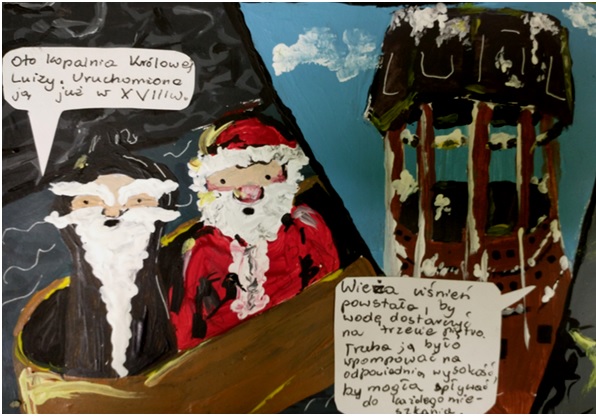 Oto kopalnia Królowej
Luizy. Uruchomiono
ją już w XVIII w.
Wieża ciśnień
powstała, by
wodę dostarczyć
na trzecie piętro.
Trzeba ją było
wpompować na
odpowiednią wysokość,
by mogła spływać
do każdego mie-
szkania.